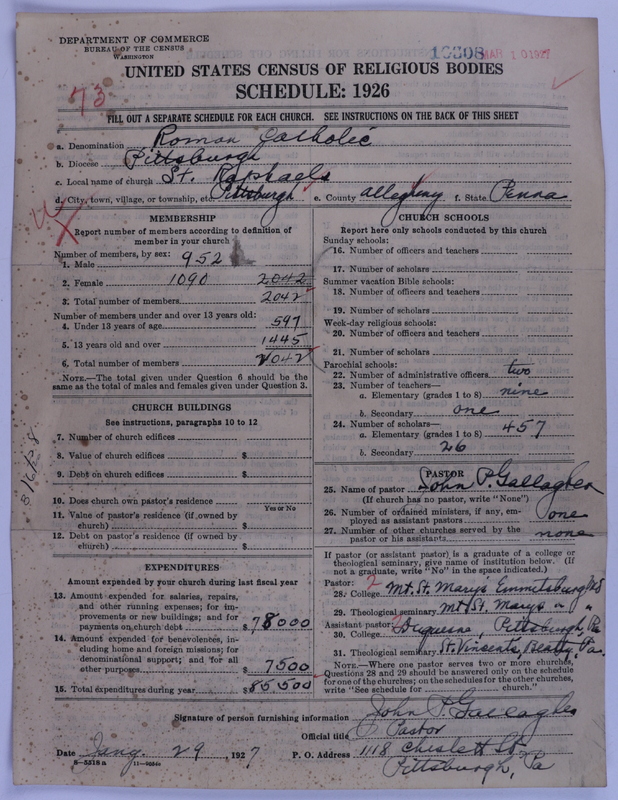 DEPARTMENT OF COMMERCE
BUREAU OF THE CENSUS
WASHINGTON
MAR 10 1927
UNITED STATES CENSUS OF RELIGIOUS BODIES
SCHEDULE: 1926
73
FILL OUT A SEPARATE SCHEDULE FOR EACH CHURCH. SEE INSTRUCTIONS ON THE BACK OF THIS SHEET
a. Denomination Roman Catholic
b. Diocese Pittsburgh
c. Local name of church St. Raphaels
d. City, town, village, or township, etc. Pittsburgh e. County Allegheny f. State Penna
MEMBERSHIP
Report number of members according to definition of
member in your church
Number of members, by sex:
1. Male 952
2. Female 1090 2042
3. Total number of members 2042
Number of members under and over 13 years old:
4. Under 13 years of age 597
5. 13 years old and over 1445
6. Total number of members 2042
NOTE.—The total given under Question 6 should be the
same as the total of males and females given under Question 3.
CHURCH BUILDINGS
See instructions, paragraphs 10 to 12
7. Number of church edifices
8. Value of church edifices $
9. Debt on church edifices $
10. Does church own pastor's residence
Yes or No
11. Value of pastor's residence (if owned by
church) $
12. Debt on pastor's residence (if owned by
church) $
EXPENDITURES
Amount expended by your church during last fiscal year
13. Amount expended for salaries, repairs,
and other running expenses; for im-
provements or new buildings; and for
payments on church debt $ 78000
14. Amount expended for benevolences, in-
cluding home and foreign missions; for
denominational support; and for all
other purposes $ 7500
15. Total expenditures during year $ 85500
CHURCH SCHOOLS
Report here only schools conducted by this church
Sunday schools:
16. Number of officers and teachers
17. Number of scholars
Summer vacation Bible schools:
18. Number of officers and teachers
19. Number of scholars
Week-day religious schools:
20. Number of officers and teachers
21. Number of scholars
Parochial schools:
22. Number of administrative officers two
23. Number of teachers—
a. Elementary (grades 1 to 8) nine
b. Secondary one
24. Number of scholars—
a. Elementary (grades 1 to 8) 457
b. Secondary 26
PASTOR
25. Name of pastor John P. Gallagher
(If church has no pastor, write "None")
26. Number of ordained ministers, if any, em-
ployed as assistant pastors one
27. Number of other churches served by the
pastor or his assistants none
If pastor (or assistant pastor) is a graduate of a college or
theological seminary, give name of institution below. (If
not a graduate, write "No" in the space indicated.)
Pastor:
28. College Mt. St. Mary's Emmitsburg Md
29. Theological seminary Mt St. Mary's " "
Assistant pastor:
30. College Duquesne, Pittsburgh, Pa
31. Theological seminary St. Vincents, Beatty, Pa.
NOTE.—Where one pastor serves two or more churches,
Questions 28 and 29 should be answered only on the schedule
for one of the churches; on the schedules for the other churches,
write "See schedule for church."
Signature of person furnishing information John P. Gallagher
Official title Pastor
Date Jany. 29, 1927 P. O. Address 1118 Chislett St.
Pittsburgh, Pa
8-5518a